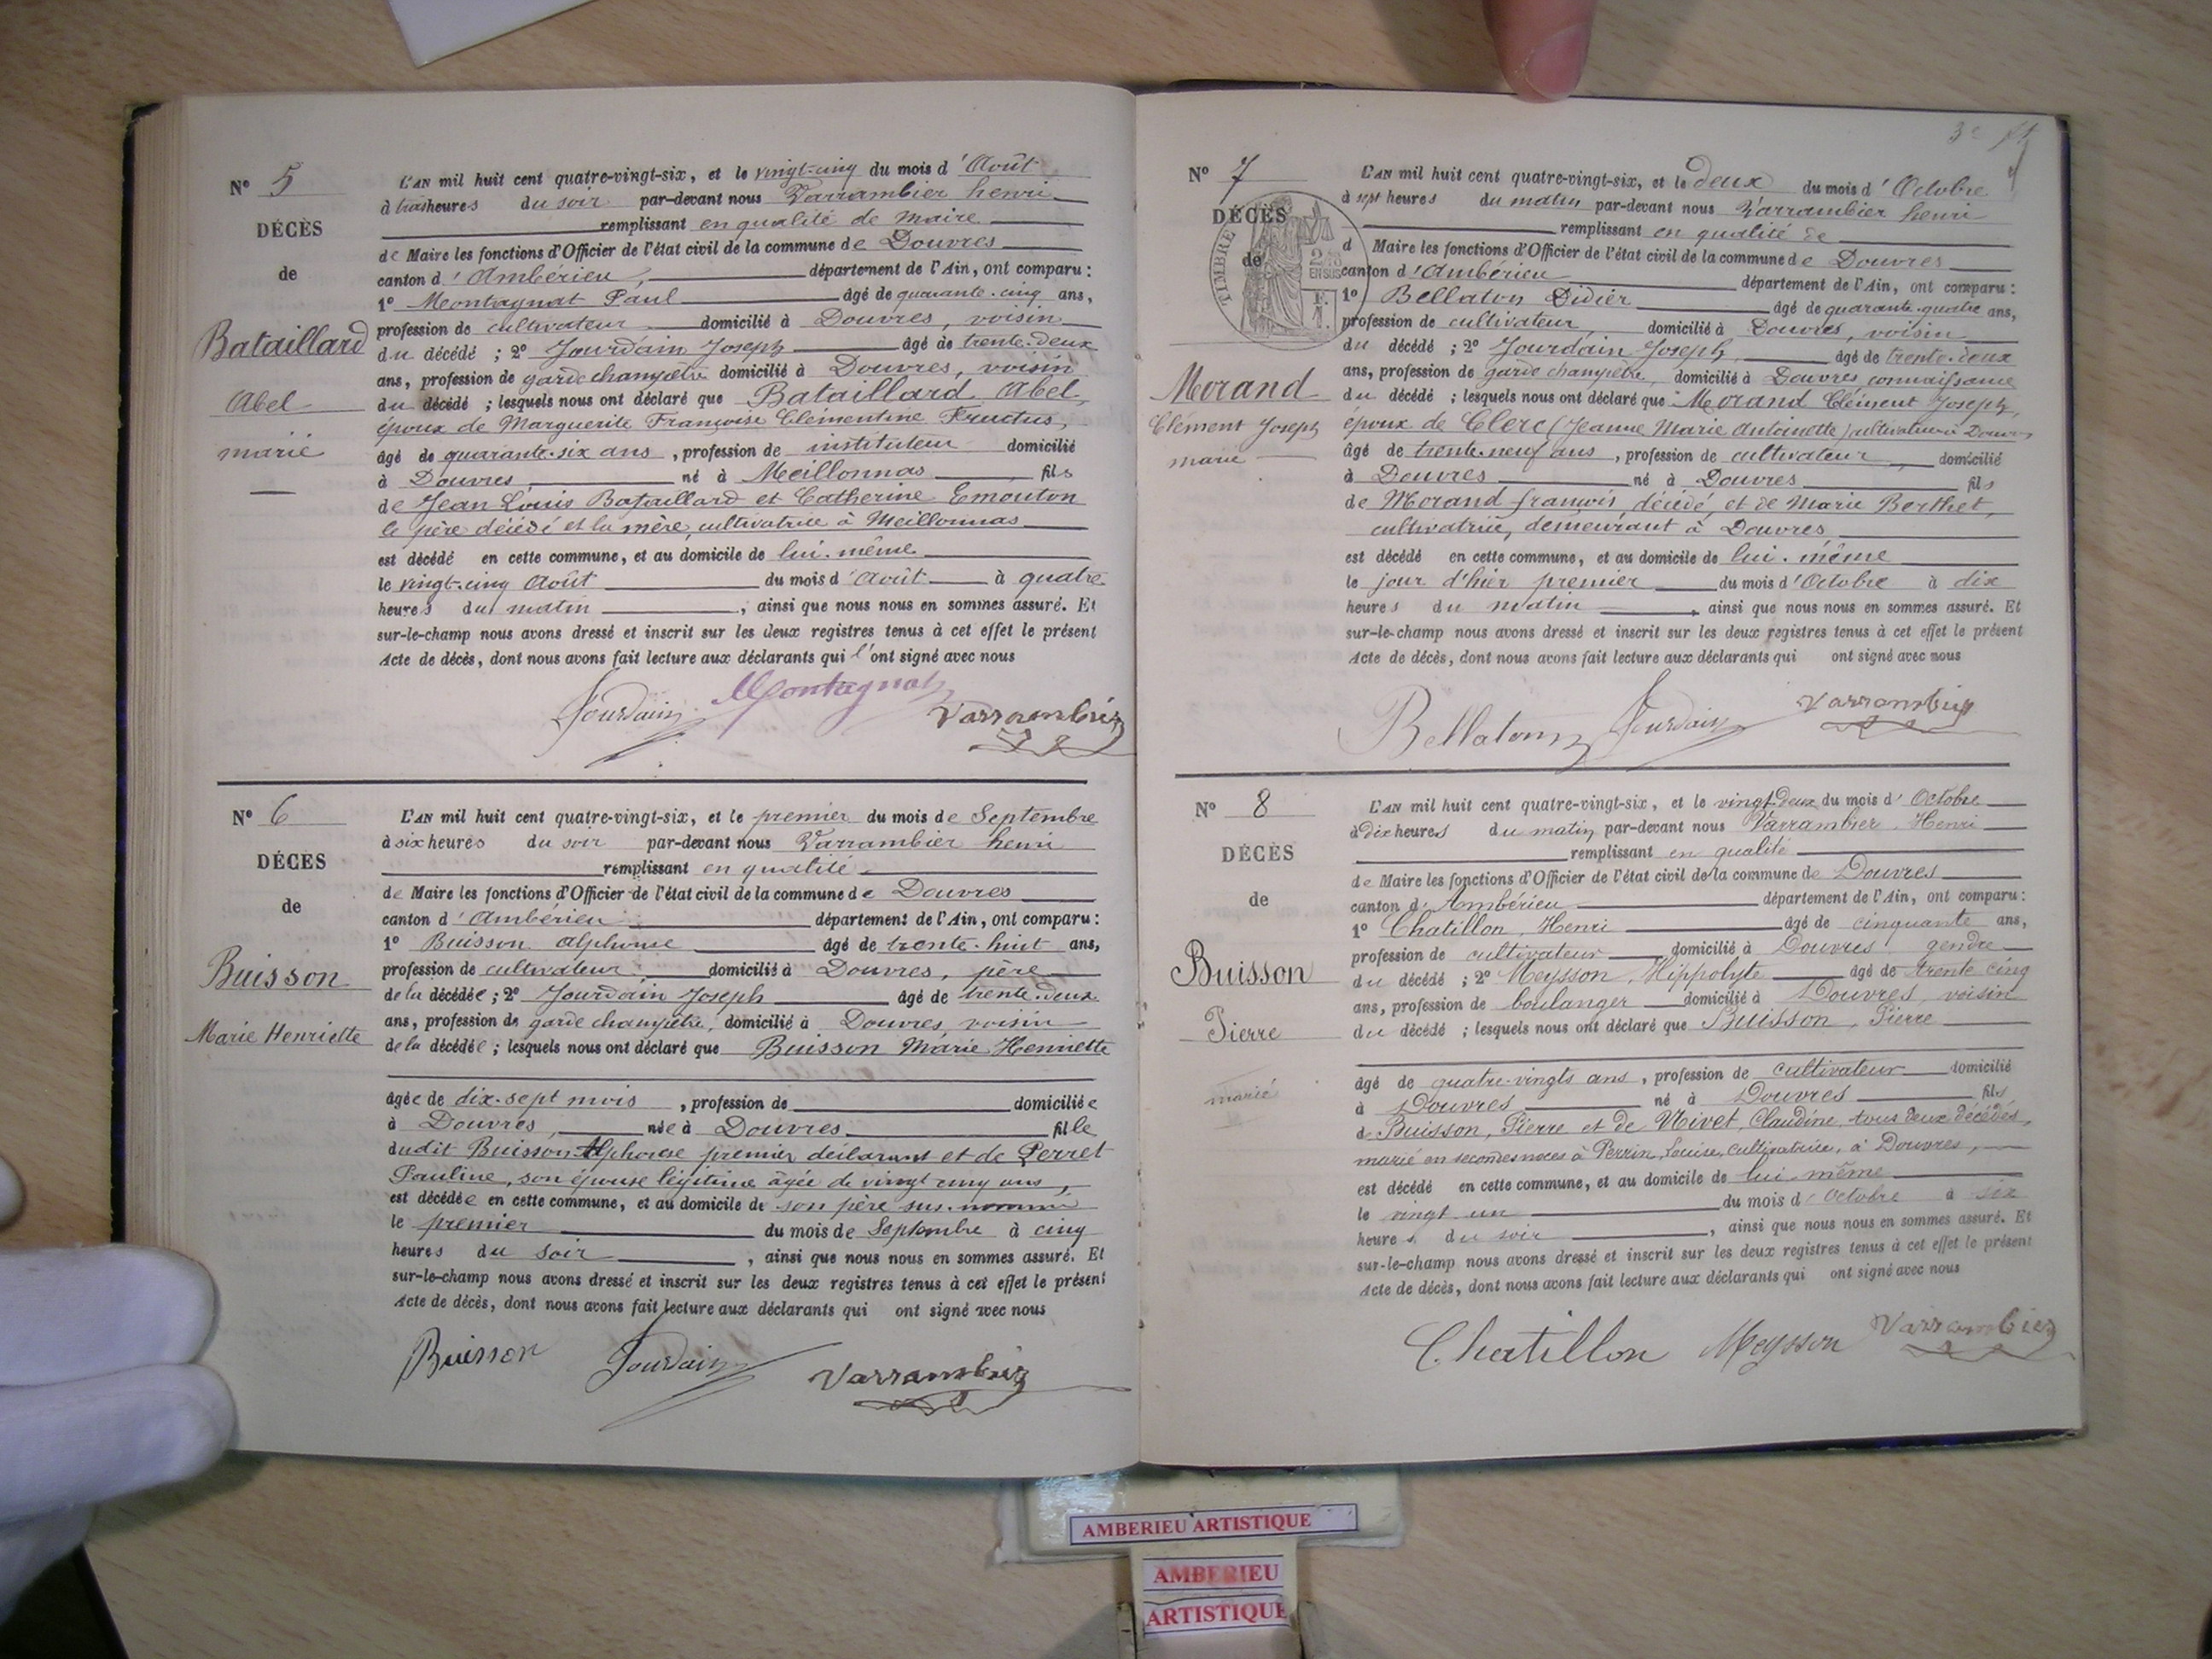 Nº 5
DÉCÈS
de
Bataillard
Abel
marié
L'AN mil huit cent quatre-vingt-six, et le vingt-cinq du mois d'Août
à trois heures du soir par-devant nous Varrambier henri
remplissant en qualité de maire
de Maire les fonctions d'Officier de l'état civil de la commune de Douvres
canton d'Ambérieu, département de l'Ain, ont comparu :
1º Montagnat Paul âgé de quarante-cinq ans,
profession de cultivateur domicilié à Douvres, voisin
du décédé ; 2º Jourdain Joseph âgé de trente-deux
ans, profession de garde champêtre domicilié à Douvres, voisin
du décédé ; lesquels nous ont déclaré que Bataillard Abel,
époux de Marguerite Françoise Clémentine Fructus,
âgé de quarante-six ans, profession de instituteur domicilié
à Douvres né à Meillonnas fils
de Jean Louis Bataillard et Catherine Emouton
le père décédé et la mère, cultivatrice à Meillonnas
est décédé en cette commune, et au domicile de lui-même
le vingt-cinq Août du mois d'Août à quatre
heures du matin, ainsi que nous nous en sommes assuré. Et
sur-le-champ nous avons dressé et inscrit sur les deux registres tenus à cet effet le présent
Acte de décès, dont nous avons fait lecture aux déclarants qui l'ont signé avec nous
Jourdain Montagnat Varrambier
Nº 6
DÉCES
de
Buisson
Marie Henriette
L'AN mil huit cent quatre-vingt-six, et le premier du mois de Septembre
à six heures du soir par-devant nous Varrambier henri
remplissant en qualité
de Maire les fonctions d'Officier de l'état civil de la commune de Douvres
canton d'Ambérieu département de l'Ain, ont comparu :
1º Buisson Alphonse âgé de trente-huit ans,
profession de cultivateur domicilié à Douvres, père
de la décédée ; 2º Jourdain Joseph âgé de trente-deux
ans, profession de garde champêtre, domicilié à Douvres, voisin
de la décédée ; lesquels nous ont déclaré que Buisson Marie Henriette
âgée de dix-sept mois, profession de domiciliée
à Douvres, née à Douvres fille
dudit Buisson Alphonse premier déclarant et de Perret
Pauline, son épouse légitime âgée de vingt cinq ans,
est décédée en cette commune, et au domicile de son père sus-nommé
le premier du mois de Septembre à cinq
heures du soir, ainsi que nous nous en sommes assuré. Et
sur-le-champ nous avons dressé et inscrit sur les deux registres tenus à cet effet le présent
Acte de décès, dont nous avons fait lecture aux déclarants qui ont signé avec nous
Buisson Jourdain Varrambier
3e
Nº 7
DÉCÈS
de
TIMBRE
2/10
EN SUS
Morand
Clément Joseph
marié
L'AN mil huit cent quatre-vingt-six, et le deux du mois d'Octobre
à sept heures du matin par-devant nous Varrambier henri
remplissant en qualité de
d Maire les fonctions d'Officier de l'état civil de la commune de Douvres
canton d'Ambérieu département de l'Ain, ont comparu :
1º Bellaton Didier âgé de quarante-quatre ans,
profession de cultivateur, domicilié à Douvres, voisin
du décédé ; 2º Jourdain Joseph, âgé de trente-deux
ans, profession de garde champêtre, domicilié à Douvres, connaissance
du décédé ; lesquels nous ont déclaré que Morand Clément Joseph,
époux de Clerc (Jeanne Marie Antoinette) cultivateurs à Douvres
âgé de trente-neuf ans, profession de cultivateur domicilié
à Douvres né à Douvres fils
de Morand françois, décédé, et de Marie Berthet,
cultivatrice, demeurant à Douvres
est décédé en cette commune, et au domicile de lui-même
le jour d'hier premier du mois d'Octobre à dix
heures du matin, ainsi que nous nous en sommes assuré. Et
sur-le-champ nous avons dressé et inscrit sur les deux registres tenus à cet effet le présent
Acte de décès, dont nous avons fait lecture aux déclarants qui ont signé avec nous
Bellaton Jourdain Varrambier
Nº 8
DÉCÈS
de
Buisson
Pierre
marié
L'AN mil huit cent quatre-vingt-six, et le vingt-deux du mois d'Octobre
à dix heures du matin par-devant nous Varrambier, Henri
remplissant en qualité
de Maire les fonctions d'Officier de l'état civil de la commune de Douvres
canton d'Ambérieu département de l'Ain, ont comparu :
1º Chatillon, Henri âgé de cinquante ans,
profession de cultivateur domicilié à Douvres gendre
du décédé ; 2º Meysson, Hippolyte âgé de trente cinq
ans, profession de boulanger domicilié à Douvres, voisin
du décédé ; lesquels nous ont déclaré que Buisson, Pierre
âgé de quatre-vingts ans, profession de cultivateur domicilié
à Douvres né à Douvres fils
d Buisson, Pierre et de Nivet, Claudine, tous deux décédés,
marié en secondes noces à Perrin, Louise, cultivatrice, à Douvres,
est décédé en cette commune, et au domicile de lui-même
le vingt-un du mois d'Octobre à six
heures du soir, ainsi que nous nous en sommes assuré. Et
sur-le-champ nous avons dressé et inscrit sur les deux registres tenus à cet effet le présent
Acte de décès, dont nous avons fait lecture aux déclarants qui ont signé avec nous
Chatillon Meysson Varrambier
AMBERIEU ARTISTIQUE
AMBERIEU
ARTISTIQUE